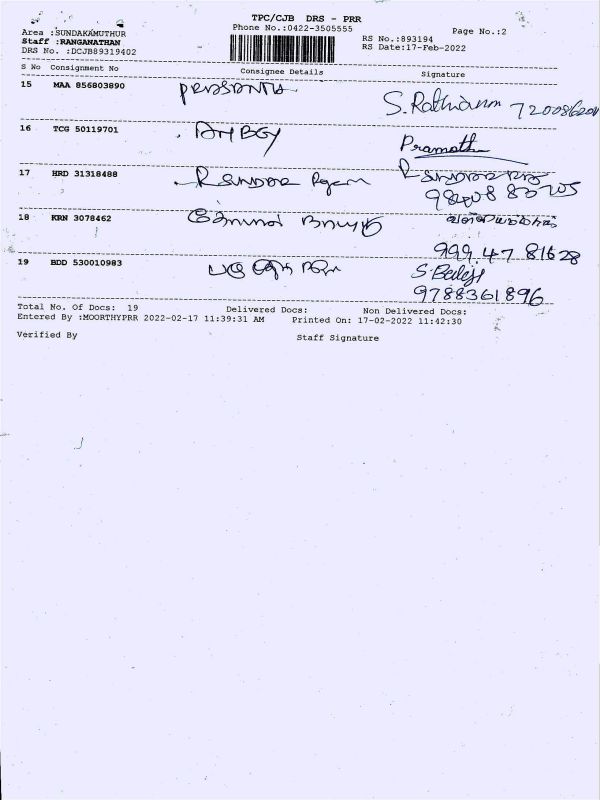 TPC/CJB DRS - PRR
Phone No.:0422-3505555
Page No.:2
Area :SUNDAKAMUTHUR
Staff :RANGANATHAN
DRS No. :DCJB89319402
RS No.:893194
RS Date:17-Feb-2022
S No Consignment No Consignee Details Signature
15 MAA 856803890 S.Rathianm
16 TCG 50119701 Pramoth
17 HRD 31318488
18 KRN 3078462
999 47 81628
19 BDD 530010983 S.Balaji
9788361896
Total No. Of Docs: 19 Delivered Docs: Non Delivered Docs:
Entered By :MOORTHYPRR 2022-02-17 11:39:31 AM Printed On: 17-02-2022 11:42:30
Verified By Staff Signature